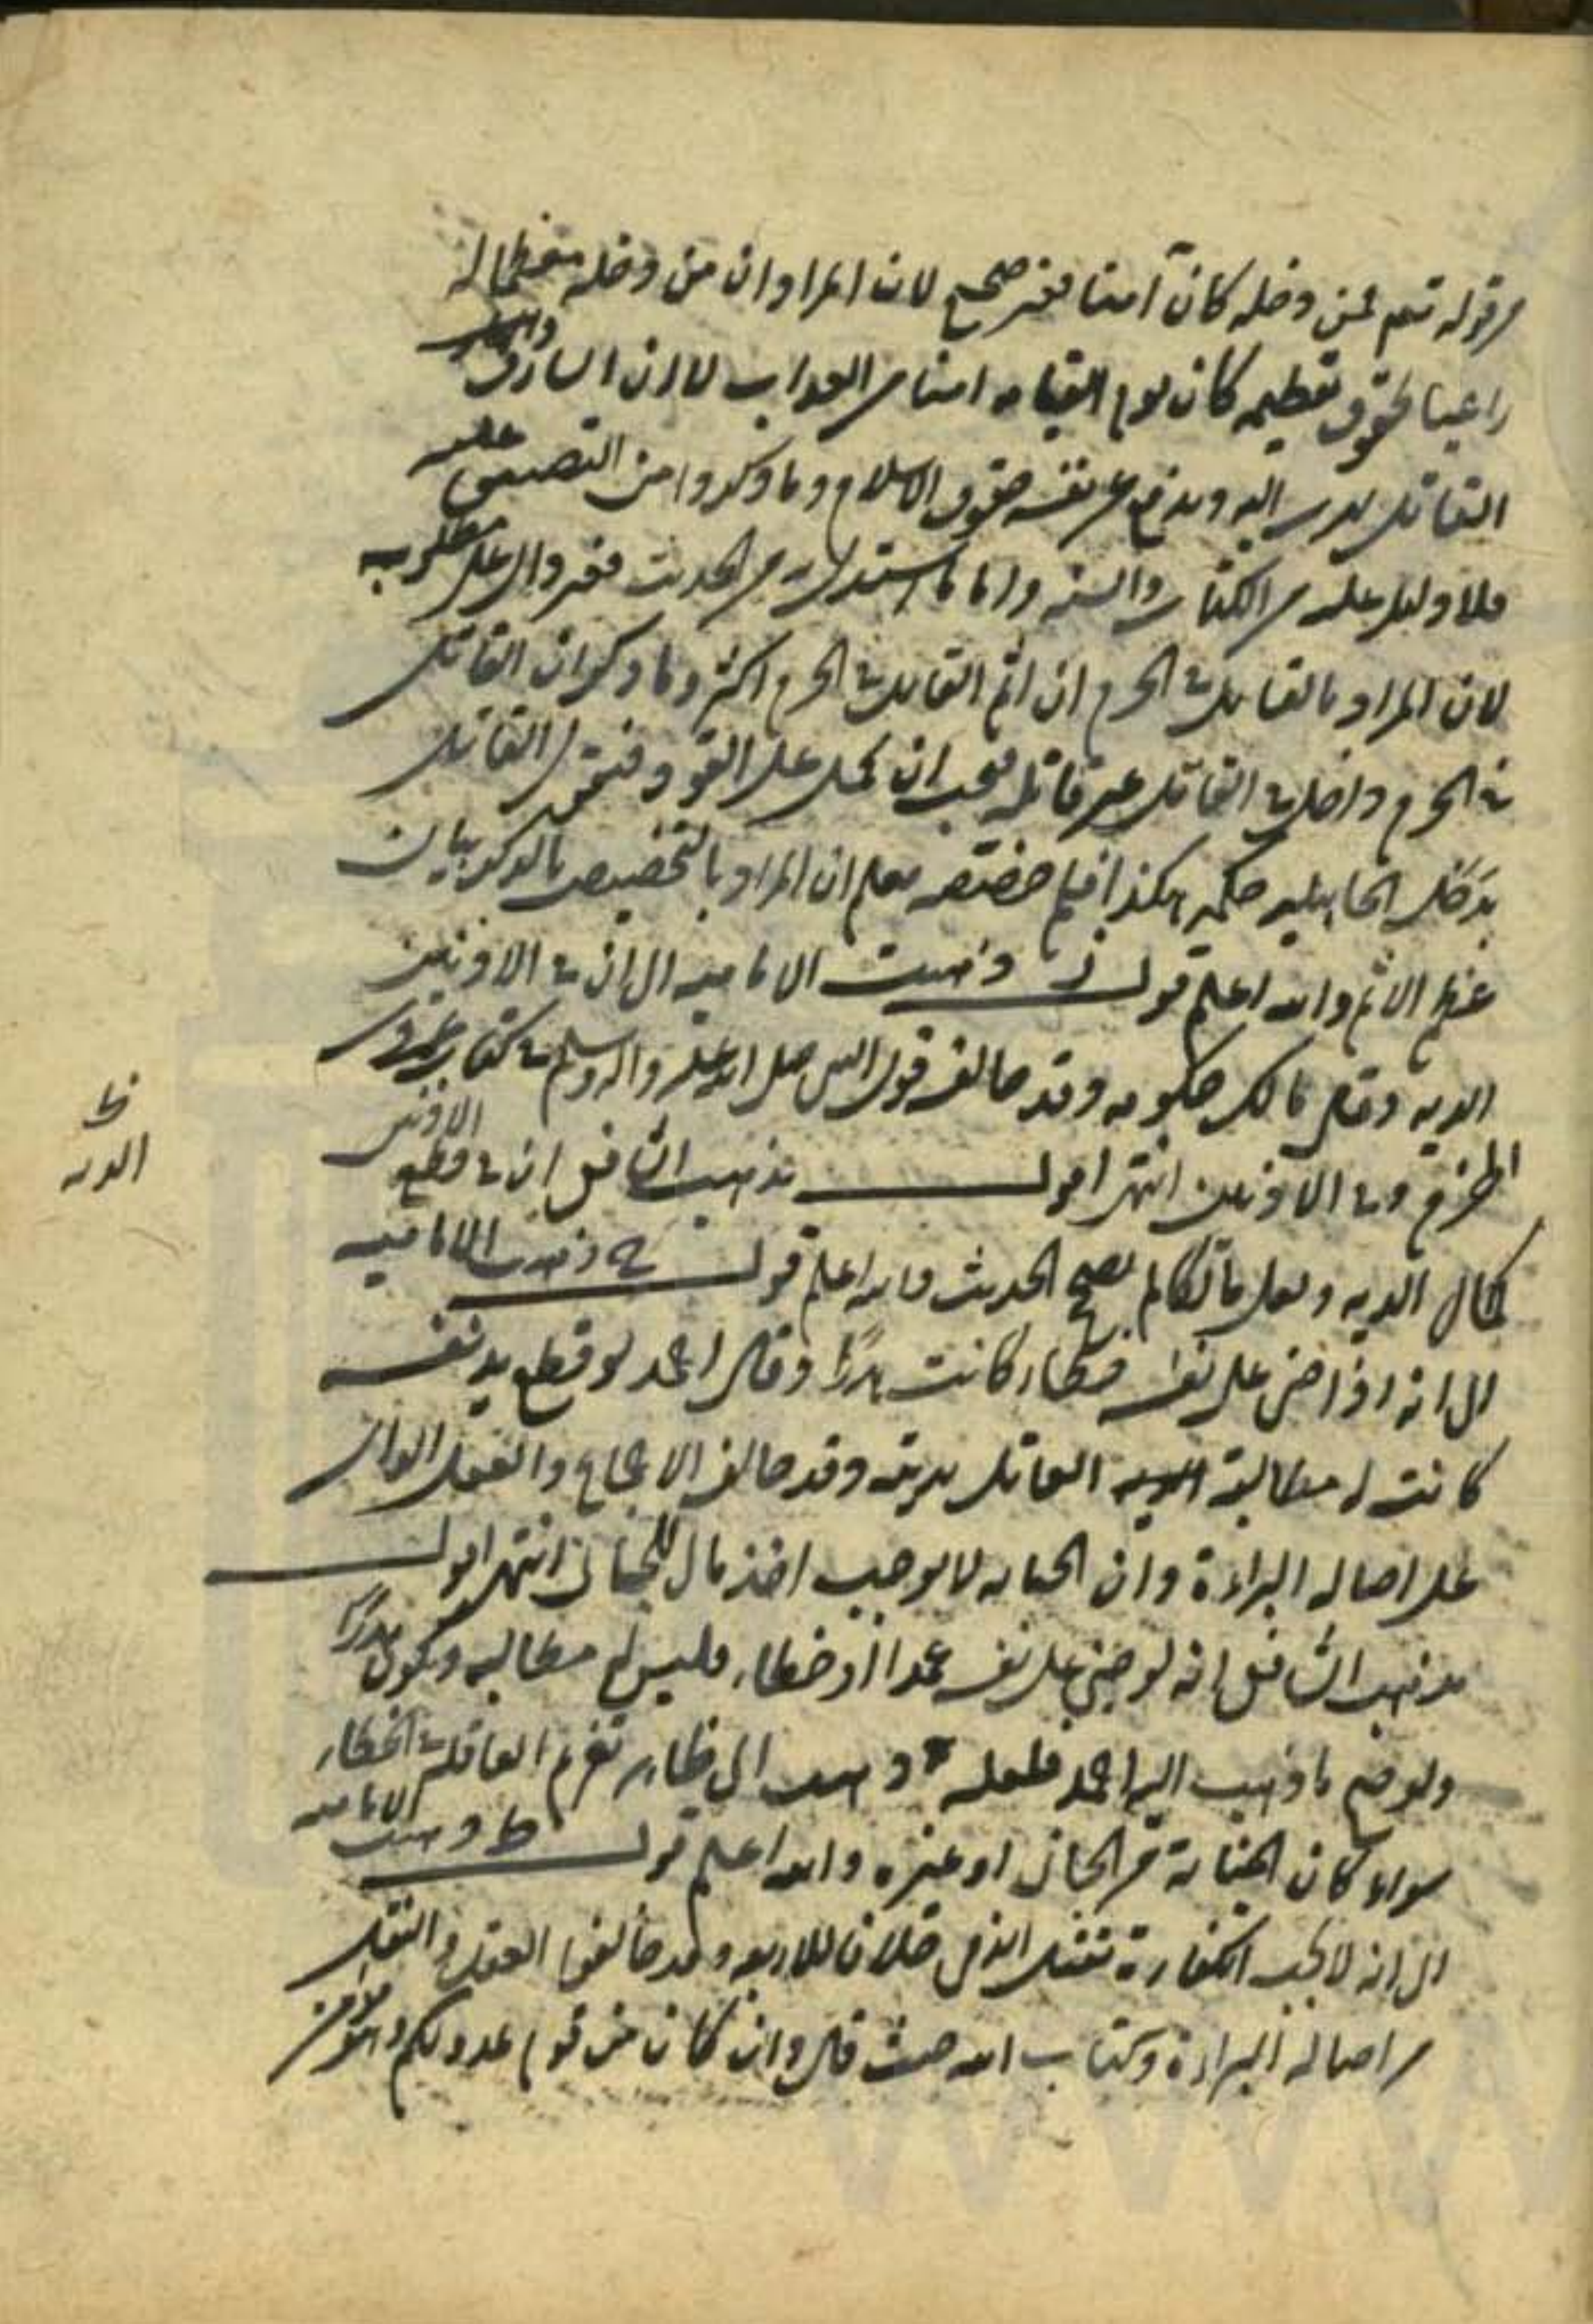 من قوله تعم فمن دخله كان آمنا فغير صحيح لان المراد ان من دخله معظما له
راعيا لحقوق تعظيمه كان يوم القيامه امنا من العذاب لا ان السارق والقاتل
القاتل يهرب اليه ويدفع عن نفسه حقوق الاسلام وما ذكروا من التضييق عليه
فلا دليل عليه من الكتاب والسنه واما ما استدل به من الحديث فغير دال على مطلوبه
لان المراد بالقاتل في الحرم ان اثم القاتل في الحرم اكثر وما ذكر ان القاتل
في الحرم داخل في القاتل غير قاتله فيجب ان يحمل على القود فنقول القاتل
بدخل الجاهليه حكمه هكذا فلم خصصه فعلم ان المراد بالتخصيص بالذكر بيان
عظم الاثم والله اعلم قوله ز وذهبت الاماميه الى ان في الاذنين
الديه وقال مالك حكومه وقد خالف قول النبي صلى الله عليه واله وسلم في كتاب عمرو بن
الحزم وفي الاذنين انتهى اقول مذهب الشافعي ان في قطع الاذنين
كمال الديه ولعل مالكا لم يصح الحديث والله اعلم قوله ح ذهبت الاماميه
الى انه اذا جنى على نفسه خطاء كانت هدرًا وقال احمد لو قطع يد نفسه
كانت له مطالبة العاقل بديته وقد خالف الاجماع والعقل الدال
على اصاله البراءة وان الجنايه لا يوجب اخذ مال للجاني انتهى اقول
مذهب الشافعي انه لو جنى على نفسه عمدا او خطاء فليس له مطالبه ويكون هدرًا
ولو صح ما ذهب اليه احمد فلعله ذهب الى ظاهر تغرم العاقله في الخطاء
سواء كان الجناية من الجاني او غيره والله اعلم قوله ط ذهبت الاماميه
الى انه لا يجب الكفارة بقتل الذمي خلافا للاربعه وقد خالفوا العقل والنقل
من اصاله البراءة وكتاب الله حيث قال وان كان من قوم عدو لكم وهو مؤمن
ظ
الديه